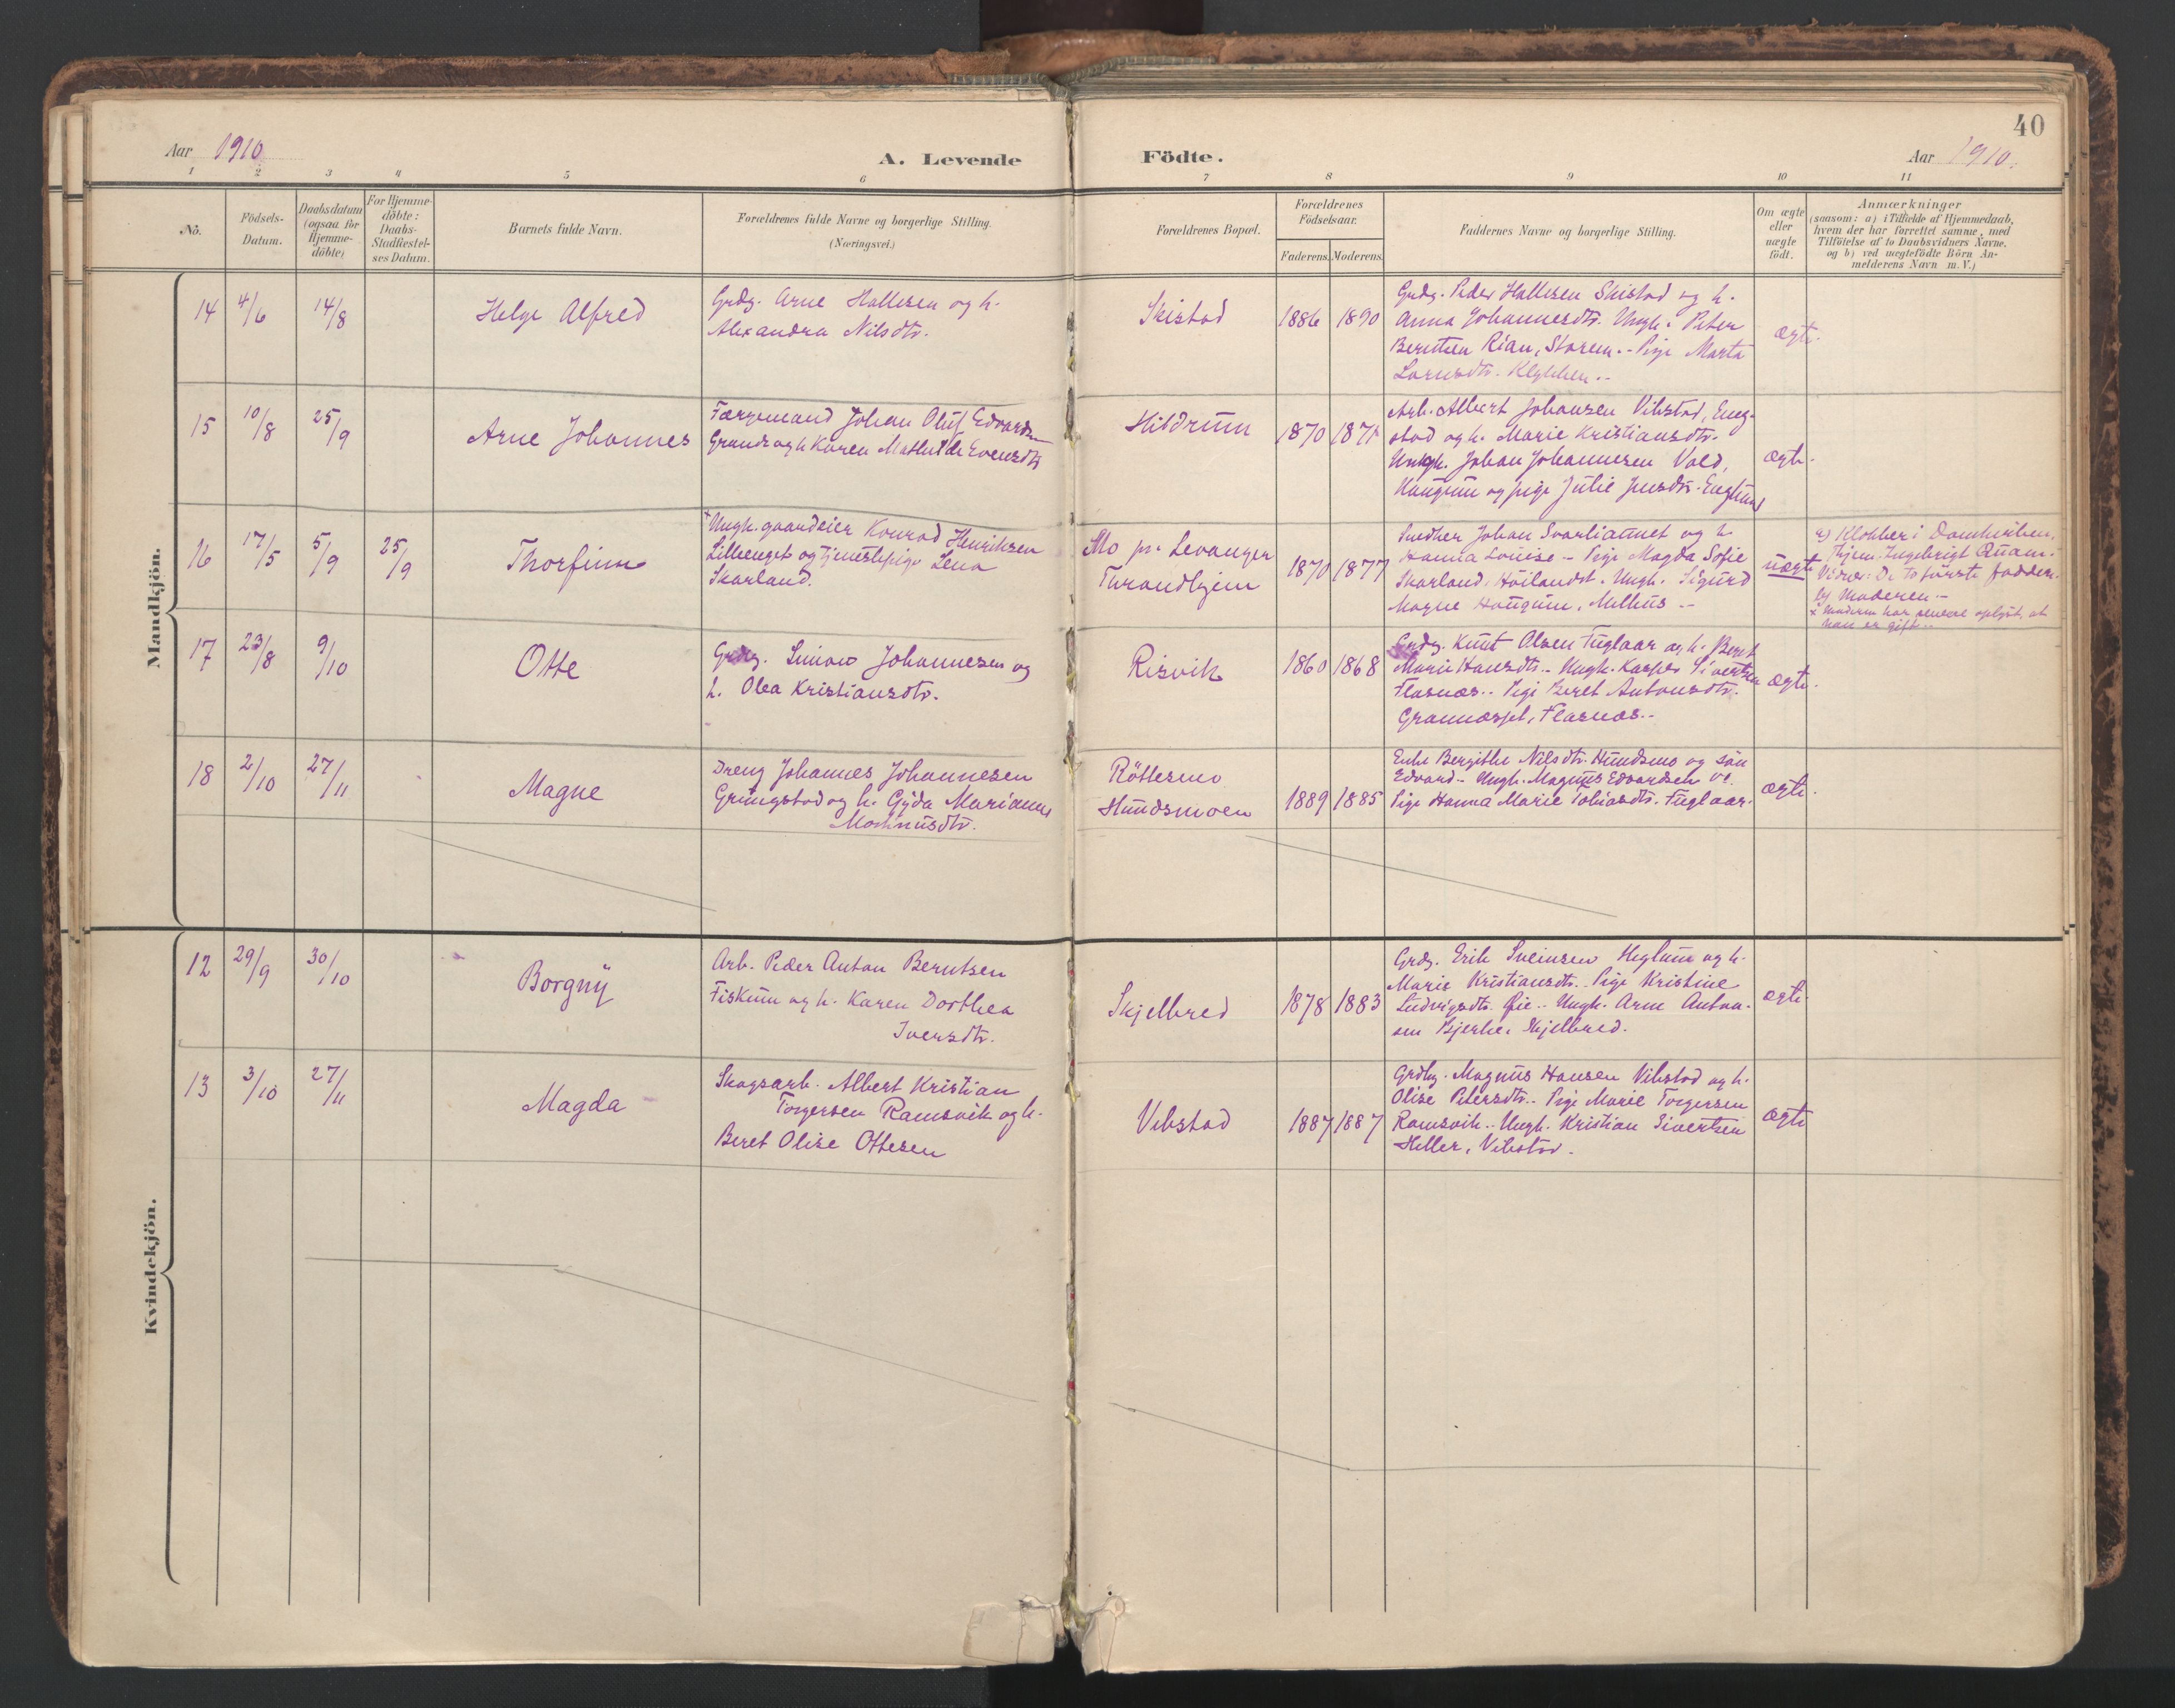 40
Aar 1910
A. Levende
Födte.
Aar 1910.
1 2 3 4 5 6 7 8 9 10 11
No.
Födsels-
Datum.
Daabsdatum
(ogsaa for
Hjemme-
döbte)
For Hjemme-
döbte:
Daabs-
Stadfæstel-
ses Datum.
Barnets fulde Navn.
Forældrenes fulde Navne og borgerlige Stilling.
(Næringsvei.)
Forældrenes Bopæl.
Forældrenes
Födselsaar.
Faderens. Moderens.
Faddernes Navne og borgerlige Stilling.
Om ægte
eller
uægte
födt.
Anmærkninger
(saasom: a) i Tilfælde af Hjemmedaab,
hvem der har forrettet samme, med
Tilföielse af to Daabsvidners Navne.
og b) ved uægtefödte Börn An-
melderens Navn m. V.)
Mandkjön.
14 4/6 14/8
Helge Alfred
Grdg. Arne Hallesen og h.
Alexandra Nilsdtr.
Skistad
1886 1890
Grdg. Peder Hallesen Skistad og h.
Anna Johannesdtr. Ungk. Peter
Berntsen Rian, Storem. - Pige Marta
Lornsdtr. Klykken. -
ægte.
15 10/8 25/9
Arne Johannes
Færgemand Johan Oluf Edvardsen
Grande og h. Karen Mathilde Evensdtr
Hildrum
1870 1871
Arb. Albert Johansen Vibstad, Eneg-
stad og h. Marie Kristiansdtr.
Ungk. Johan Johannesen Vold,
Haugum og pige Julie Jensdtr.
ægte.
16 17/5 5/9 25/9
Thorfinn
+ Ungk. gaardeier Konrad Henriksen
Lilleenget og tjenestepige Lena
Skarland.
Mo pr. Levanger
Turondhjem
1870 1877
Smeder Johan Svarliaunet og h
Hanna Louise - Pige Magda Sofie
Skarland, Höilandet. Ungk. Sigurd
Magne Haugum, Melhus -
uægte
a) Klokker i Domkirken,
Thjem. Ingebrigt Quam.
Vidner: De to første faddere.
b) Moderen. -
x Moderen har senere oplyst, at
han er gift. -
17 23/8 9/10
Otte
Grdbg. Simon Johannesen og
h. Olea Kristiansdtr.
Risvik
1860 1868
Grdg. Knut Olsen Fuglaar og h. Beret
Marie Hansdtr. - Ungk. Kasper Sivertsen
Flasnæs. - Pige Beret Antonsdtr.
Grannæsset, Flasnæs. -
ægte.
18 2/10 27/11
Magne
Dreng Johannes Johannesen
Grungstad og h. Gyda Marianne
Markusdtr.
Röttesmo
Hundsmoen
1889 1885
Enke Bergithe Nilsdtr. Hundsmo og sön
Edvard - Ungk. Magnus Edvardsen
Pige Hanna Marie Tobiasdtr. Fuglaar.
ægte.
Kvindekjön.
12 29/9 30/10
Borgny
Arb. Peder Anton Berntsen
Fiskum og h. Karen Dorthea
Iversdtr.
Skjelbred
1878 1883
Grdg. Erik Sveinsen Heglum og h.
Marie Kristiansdtr. - Pige Kristine
Ludvigsdtr. Øie. - Ungk. Arne Anton-
sen Bjerke, Skjelbred.
ægte.
13 3/10 27/11
Magda
Skogsarb. Albert Kristian
Torgersen Ramsvik og h.
Beret Olise Ottesen
Vibstad
1887 1887
Grdbg. Magnus Hansen Vibstad og h.
Olise Petersdtr. - Pige Marie Torgersen
Ramsvik. - Ungk. Kristian Sivertsen
Heller, Vibstad.
ægte